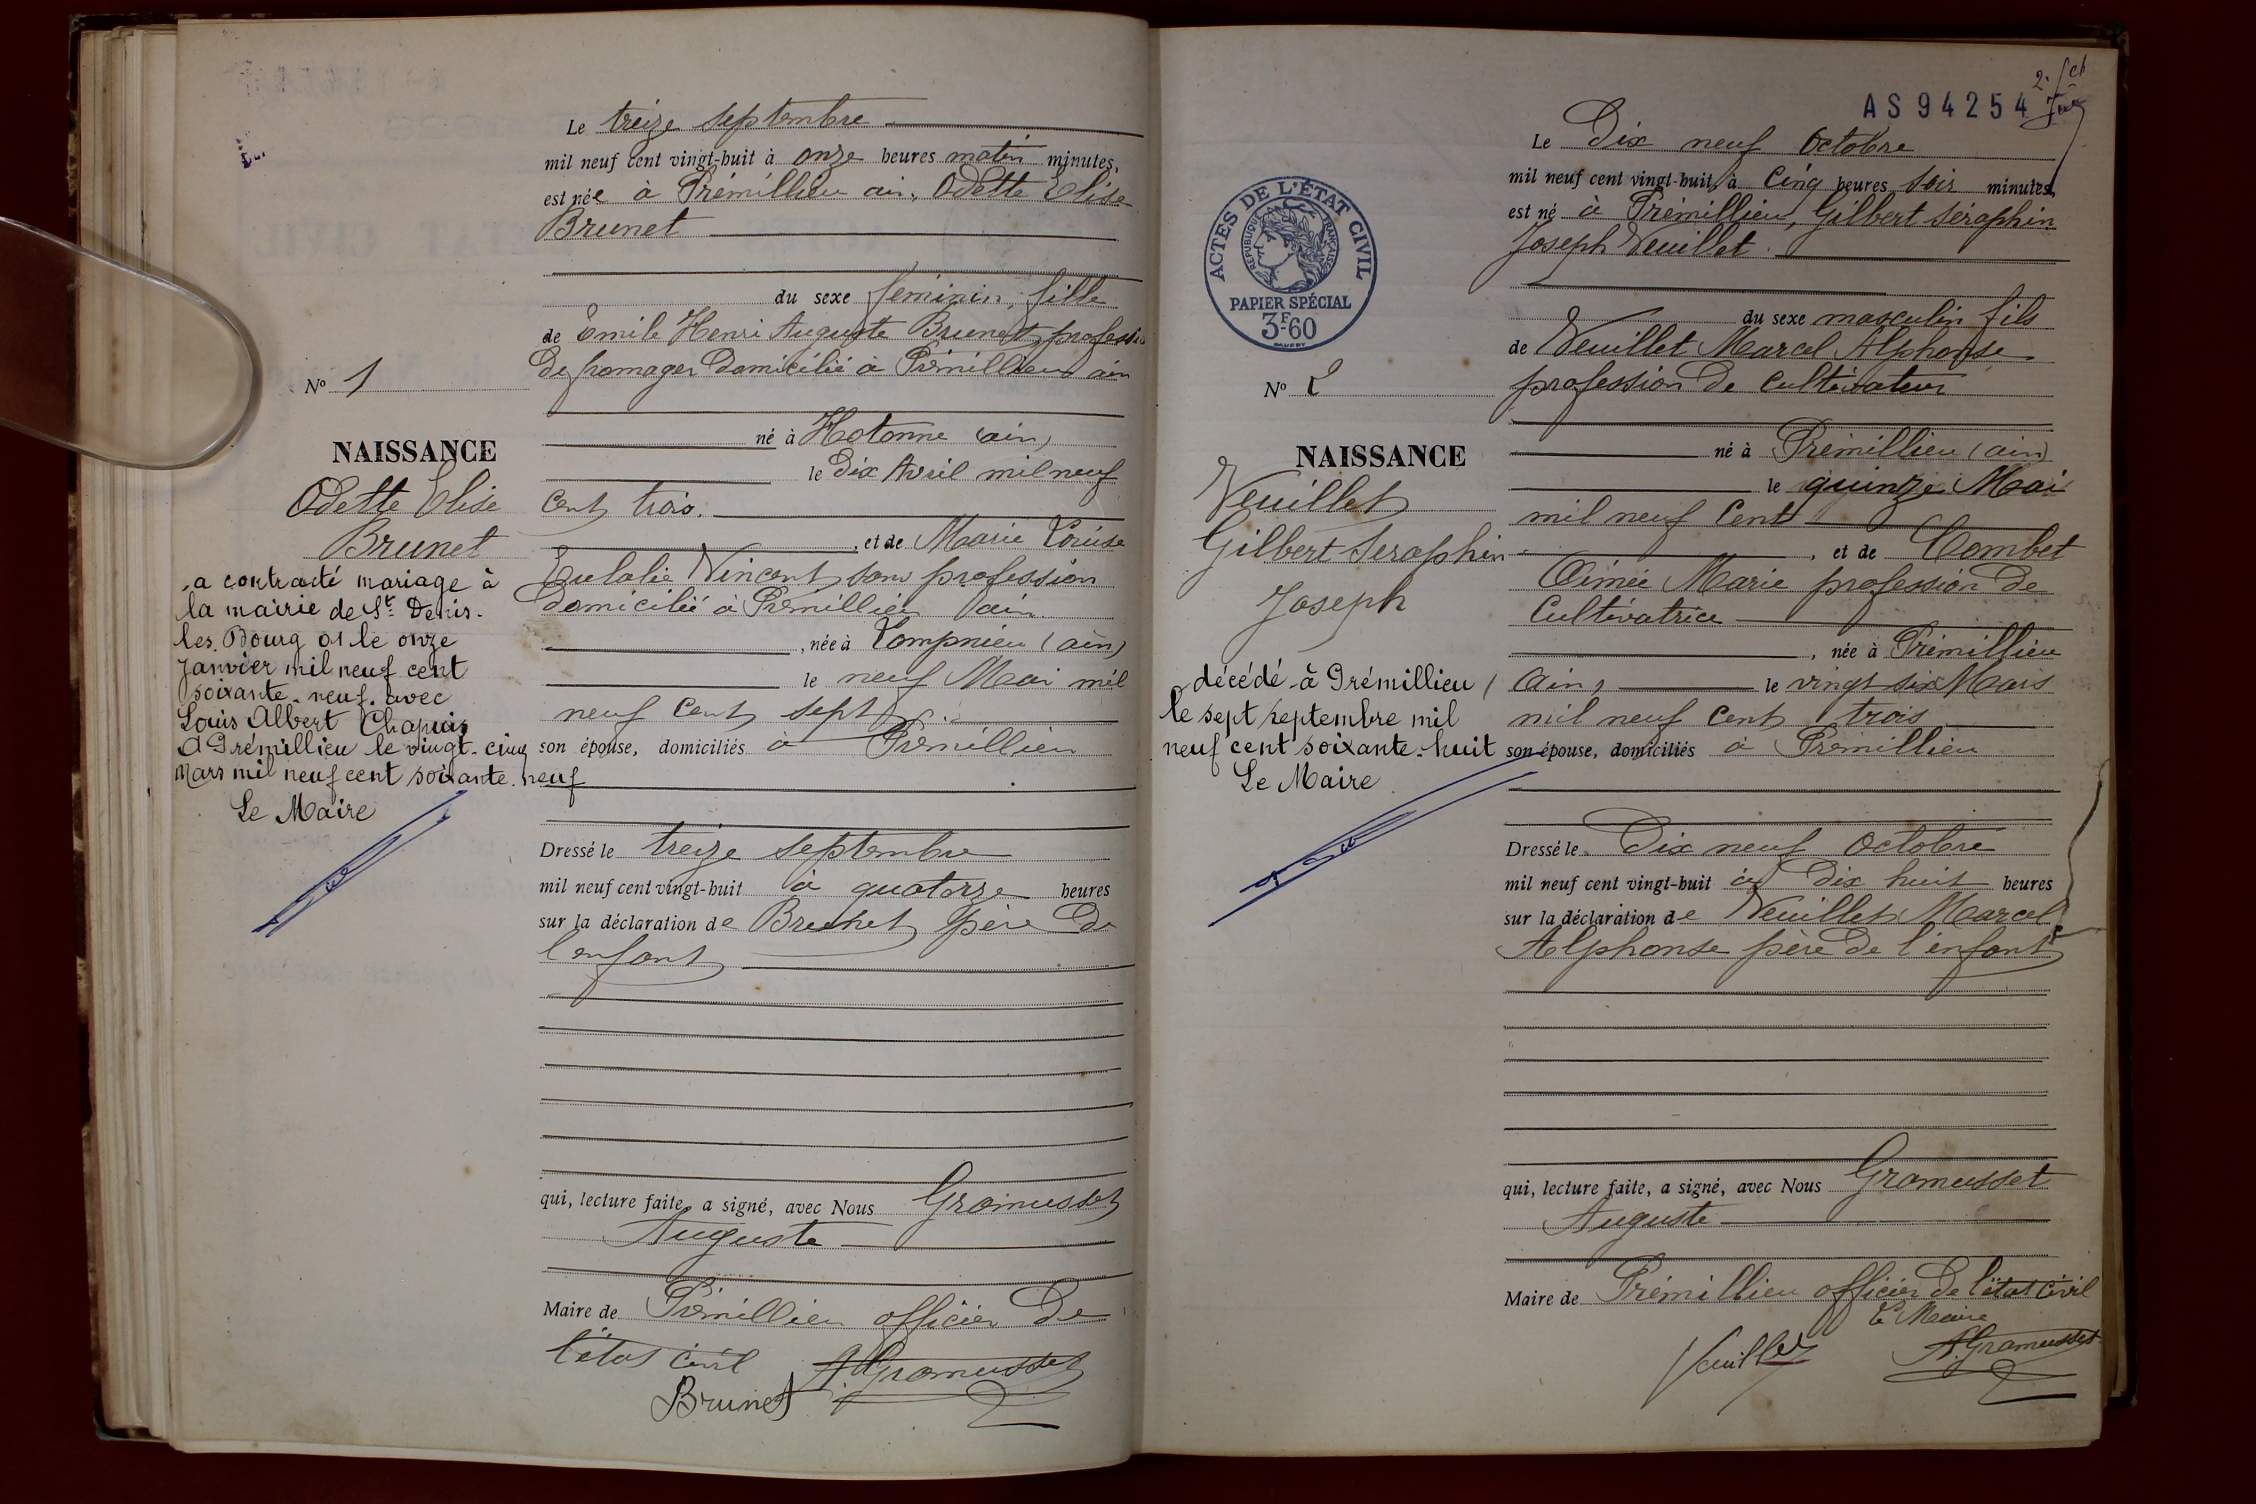 Le treize septembre
mil neuf cent vingt-huit à onze heures matin minutes,
est née à Prémillieu ain, Odette Elise
Brunet
du sexe feminin, fille
de Emile Henri Auguste Brunet, profession
de fromager domicilié à Prémillieu ain
N° 1
né à Hotonne (ain)
NAISSANCE
le dix Avril mil neuf
Odette Elise
cent trois.
Brunet
, et de Marie Louise
a contracté mariage à
la mairie de St Denis-
les Bourg 01 le onze
Janvier mil neuf cent
soixante-neuf avec
Louis Albert Chapuis
A Prémillieu le vingt-cinq
Mars mil neuf cent soixante-neuf
Le Maire
Eulalie Vincent sans profession
domicilié à Prémillieu ain
, née à Lompnieu (ain)
le neuf Mai mil
neuf cent sept
son épouse, domiciliés à Prémillieu
Dressé le treize septembre
mil neuf cent vingt-huit à quatorze heures
sur la déclaration de Brunet père de
l'enfant
qui, lecture faite, a signé, avec Nous Gramusset
Auguste
Maire de Prémillieu officier de
l'état civil
A. Gramusset
Brunet
AS94254
Le Dix neuf Octobre
mil neuf cent vingt-huit, à Cinq heures soir minutes,
est né à Prémillieu, Gilbert séraphin
Joseph Veuillet
ACTES DE L'ÉTAT CIVIL
RÉPUBLIQUE FRANÇAISE
PAPIER SPÉCIAL
3F-60
du sexe masculin fils
de Veuillet Marcel Alphonse
profession de cultivateur
N° 2
né à Prémillieu (ain)
NAISSANCE
le quinze Mai
Veuillet
mil neuf Cent
Gilbert Seraphin
, et de Combet
Joseph
Aimée Marie profession de
Cultivatrice
, née à Prémillieu
décédé à Prémillieu
le sept septembre mil
neuf cent soixante-huit
Le Maire
(Ain) le vingt six Mars
mil neuf cent trois
son épouse, domiciliés à Prémillieu
Dressé le Dix neuf Octobre
mil neuf cent vingt-huit à Dix huit heures
sur la déclaration de Veuillet Marcel
Alphonse père de l'enfant
qui, lecture faite, a signé, avec Nous Gramusset
Auguste
Maire de Prémillieu officier de l'état civil
Le Maire
Veuillet A. Gramusset